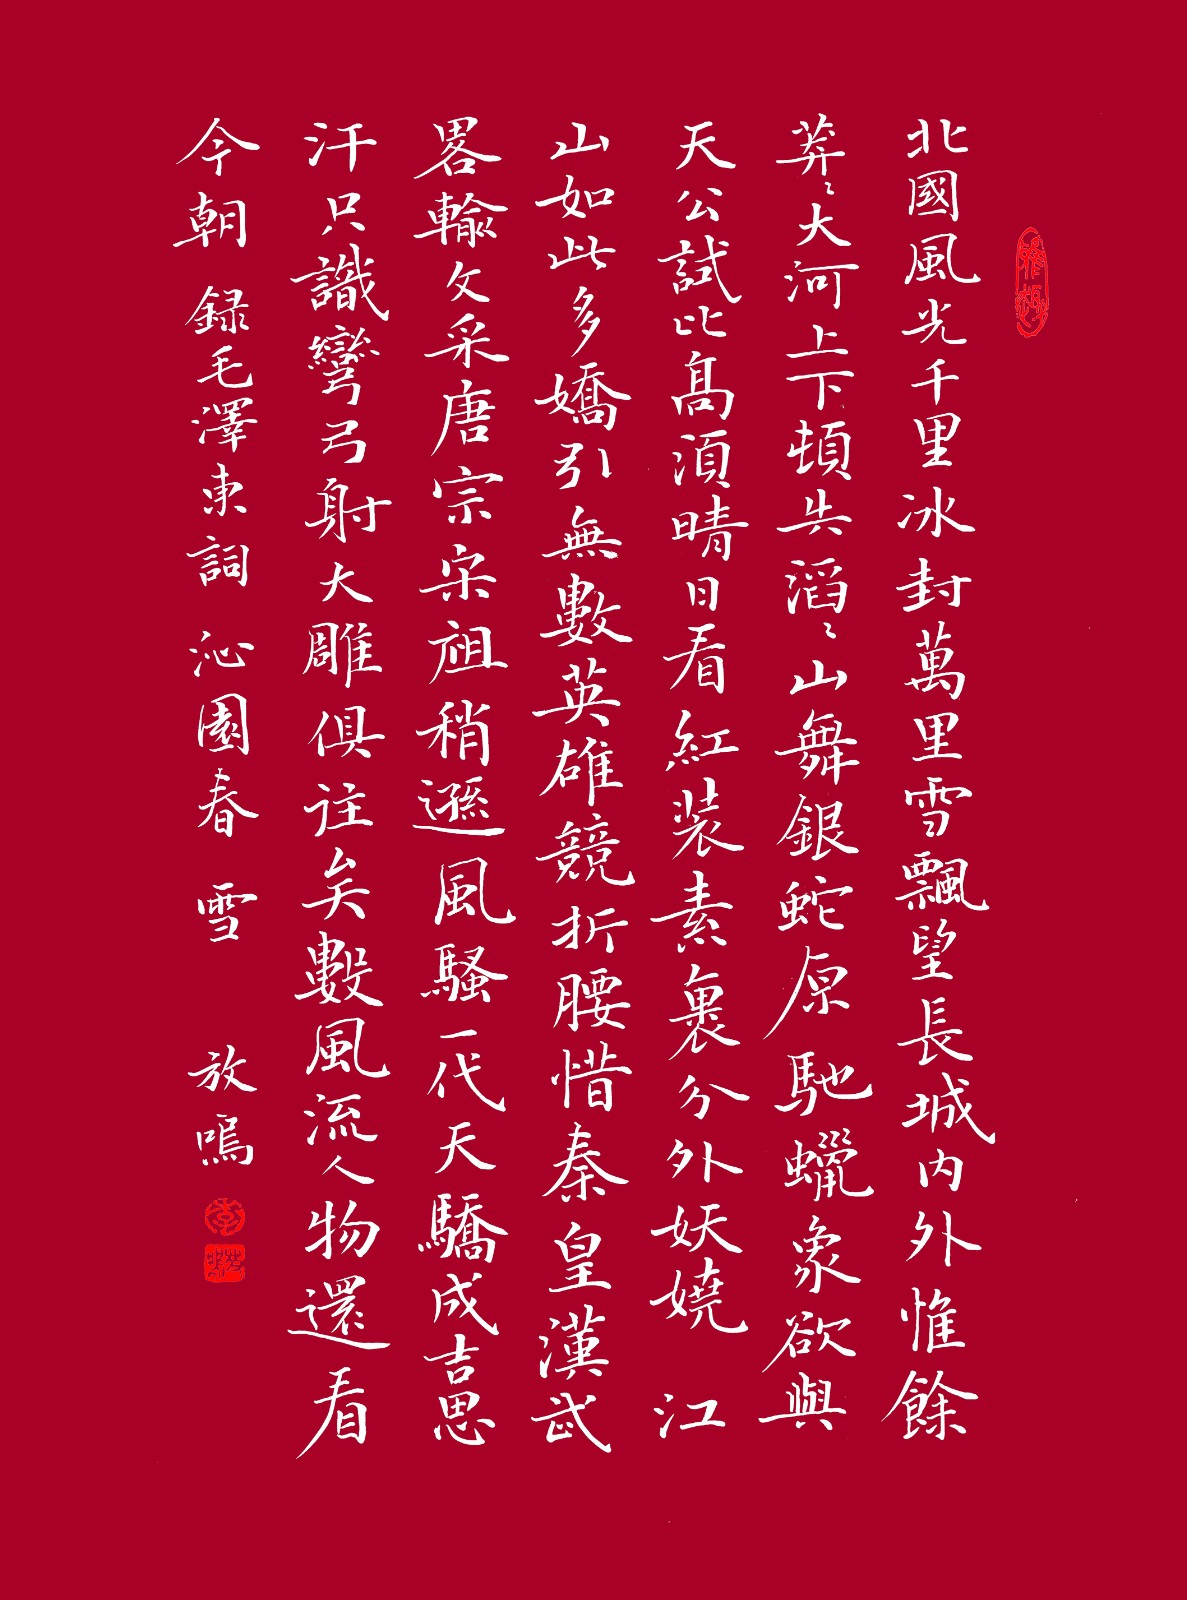 北國風光千里冰封萬里雪飄望長城内外惟餘
莽〻大河上下頓失滔〻山舞銀蛇原馳蠟象欲與
天公試比髙須晴日看紅装素裹分外妖嬈 江
山如此多嬌引無數英雄競折腰惜秦皇漢武
畧輸文采唐宗宋祖稍遜風騷一代天驕成吉思
汗只識彎弓射大雕俱往矣數風流人物還看
今朝 録毛澤東詞 沁園春 雪 放鳴